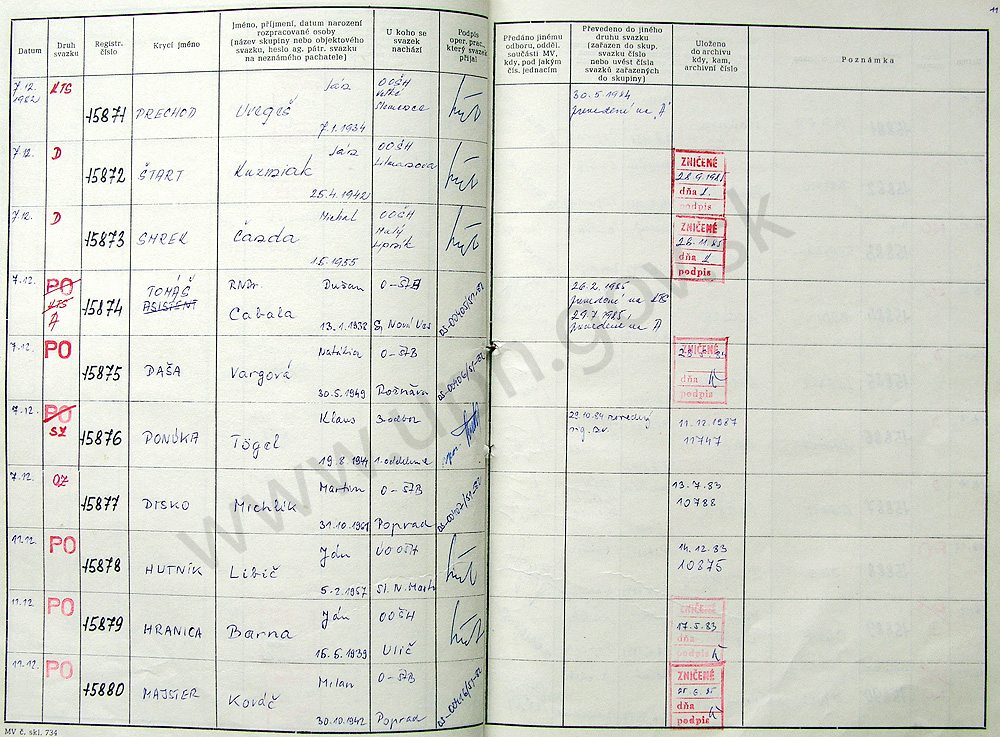 11
Datum
Druh svazku
Registr. číslo
Krycí jméno
Jméno, příjmení, datum narození
rozpracované osoby
(název skupiny nebo objektového
svazku, heslo ag. pátr. svazku
na neznámého pachatele)
U koho se
svazek
nachází
Podpis
oper. prac.,
který svazek
přijal
Předáno jinému
odboru, odděl.
součásti MV,
kdy, pod jakým
čís. jednacím
Převedeno do jiného
druhu svazku
(zařazen do skup.
svazku číslo
nebo uvést čísla
svazků zařazených
do skupiny)
Uloženo
do archivu
kdy, kam,
archivní číslo
Poznámka
7.12. 1982 KTS 15871 PRECHOD
7.1.1934
OOŠH
30.5.1984
prevedené na "A"
7.12. D 15872 ŠTART Kuzmiak
25.4.1942
OOŠH
ZNIČENÉ
dňa
podpis
7.12. D 15873 SMREK Michal
Čazda
1955
OOŠH
Malý
Lipník
ZNIČENÉ
28.11.85
dňa
podpis
7.12. PO KTS A 15874 TOMÁŠ ASISTENT RNDr. Dušan
Cabala
13.1.1938
O-ŠTB
Sp. Nová Ves
26.2.1985
prevedené na KTS
29.7.1985,
prevedené na A
7.12. PO 15875 DAŠA Natália
Vargová
30.5.1949
O-ŠTB
Rožňava
ZNIČENÉ
dňa
podpis
7.12. PO SZ 15876 PONUKA Klaus
Tögel
19.8.1944
3.odbor
1.oddelenie
29.10.84
11.12.1987
11747
7.12. OZ 15877 DISKO Martin
Michlík
31.10.1961
O-ŠTB
Poprad
13.7.83
10788
11.12. PO 15878 HUTNÍK Ján
Libič
5.2.1957
OOŠH
14.12.83
10875
11.12. PO 15879 HRANICA Ján
Barna
16.5.1939
OOŠH
Ulič
ZNIČENÉ
17.5.83
dňa
podpis
11.12. PO 15880 MAJSTER Milan
Kováč
30.10.1942
O-ŠTB
Poprad
ZNIČENÉ
dňa
podpis
MV č. skl. 734
www.upn.gov.sk